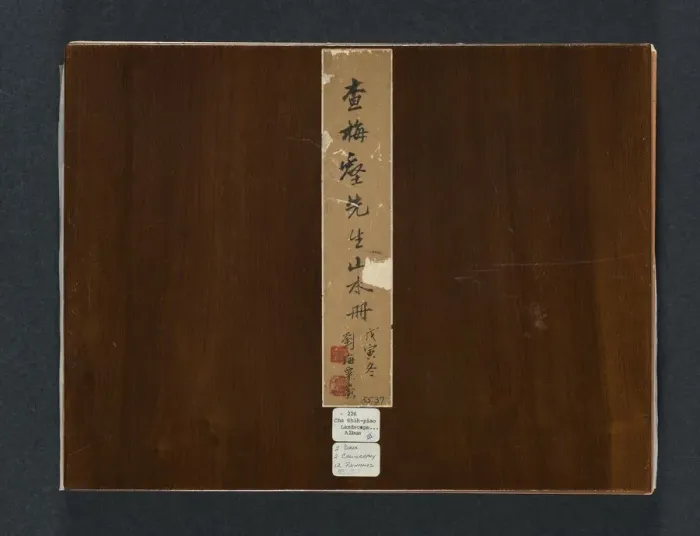 查梅壑先生山水冊
戊寅冬
劉海粟
55.37
- 226
Cha Shih-piao
Landscape...
Album
2 CALLIGRAPHY